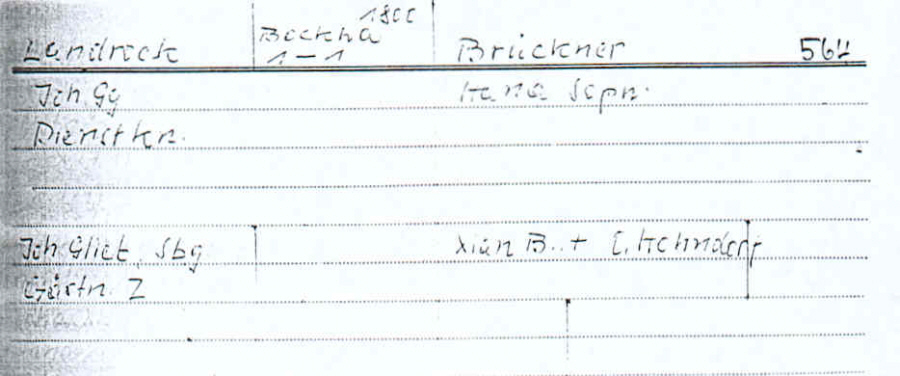 1800
Landrock Bockha Brückner 564
1 – 1
Joh. Gg Hana Sopn.
Dienstkn.
Joh. Gliet, Sbg Xian B.. +
Gärtn. Z